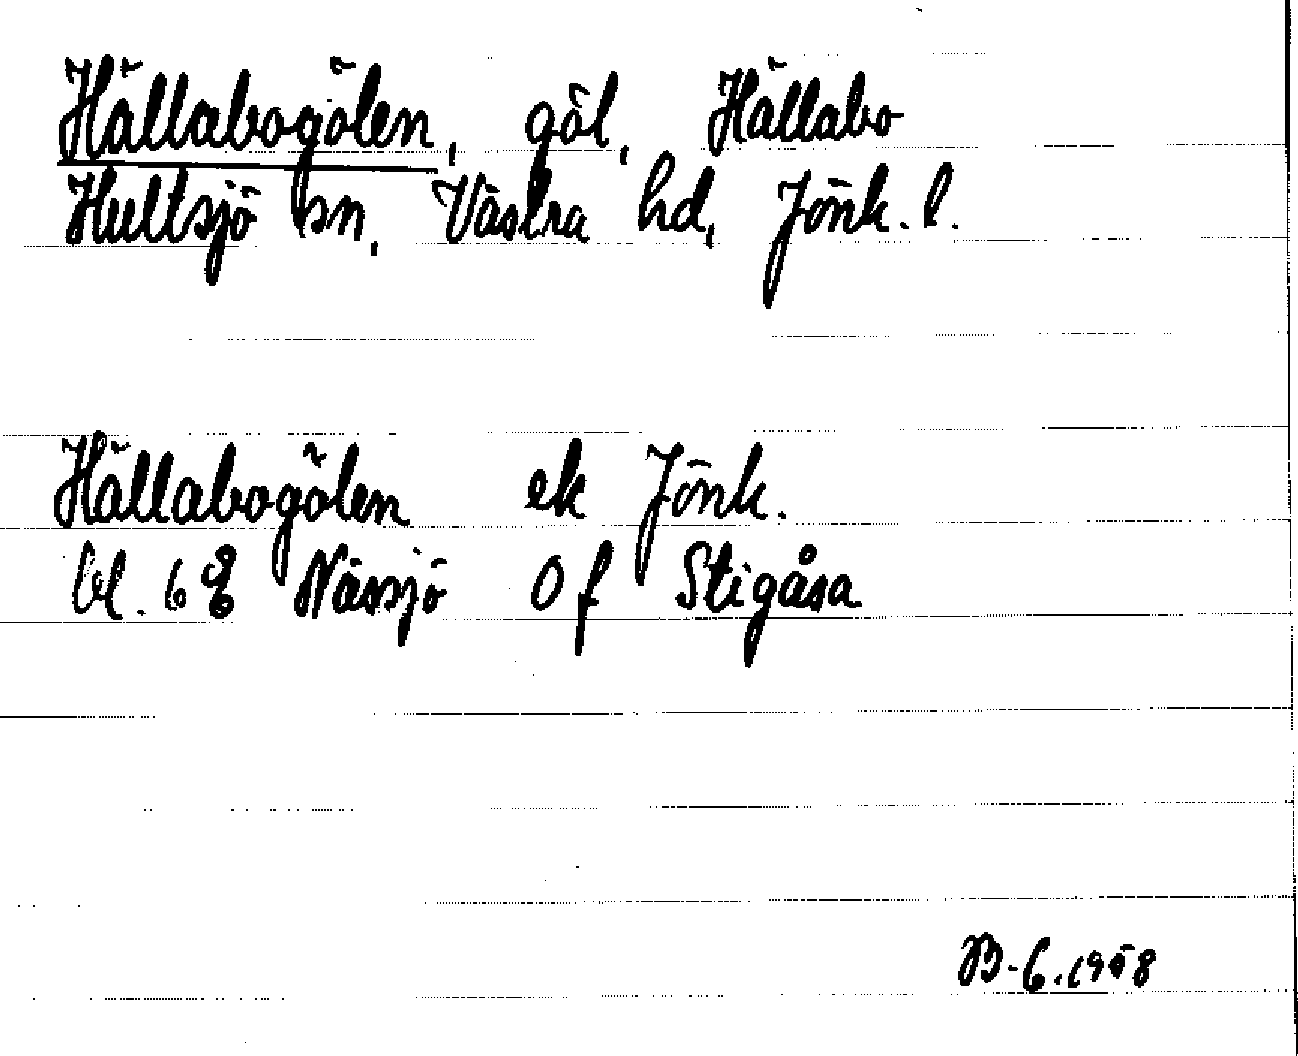 Hällabogölen, göl, Hällabo
Hultsjö sn, Västra hd, Jönk. l.
Hällabogölen ek Jönk.
bl. 6 E Nässjö Of Stigåsa
B-G.1958